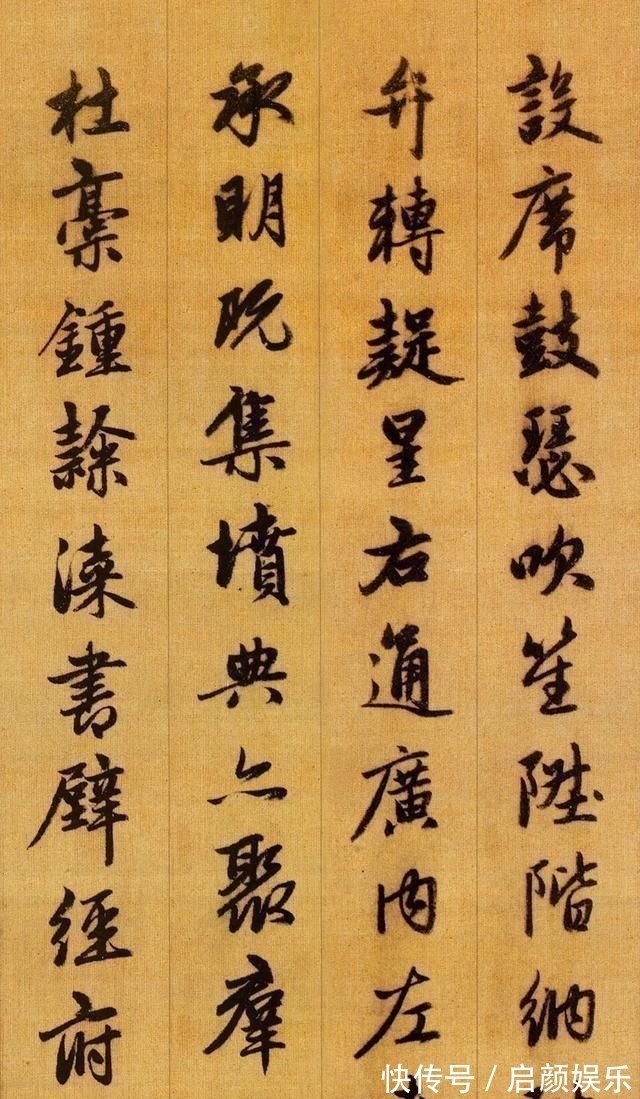 設席鼓瑟吹笙陞階納
弁轉疑星右通廣内左
承明既集墳典亦聚羣
杜稾鍾隸漆書壁經府
快传号／启颜娱乐